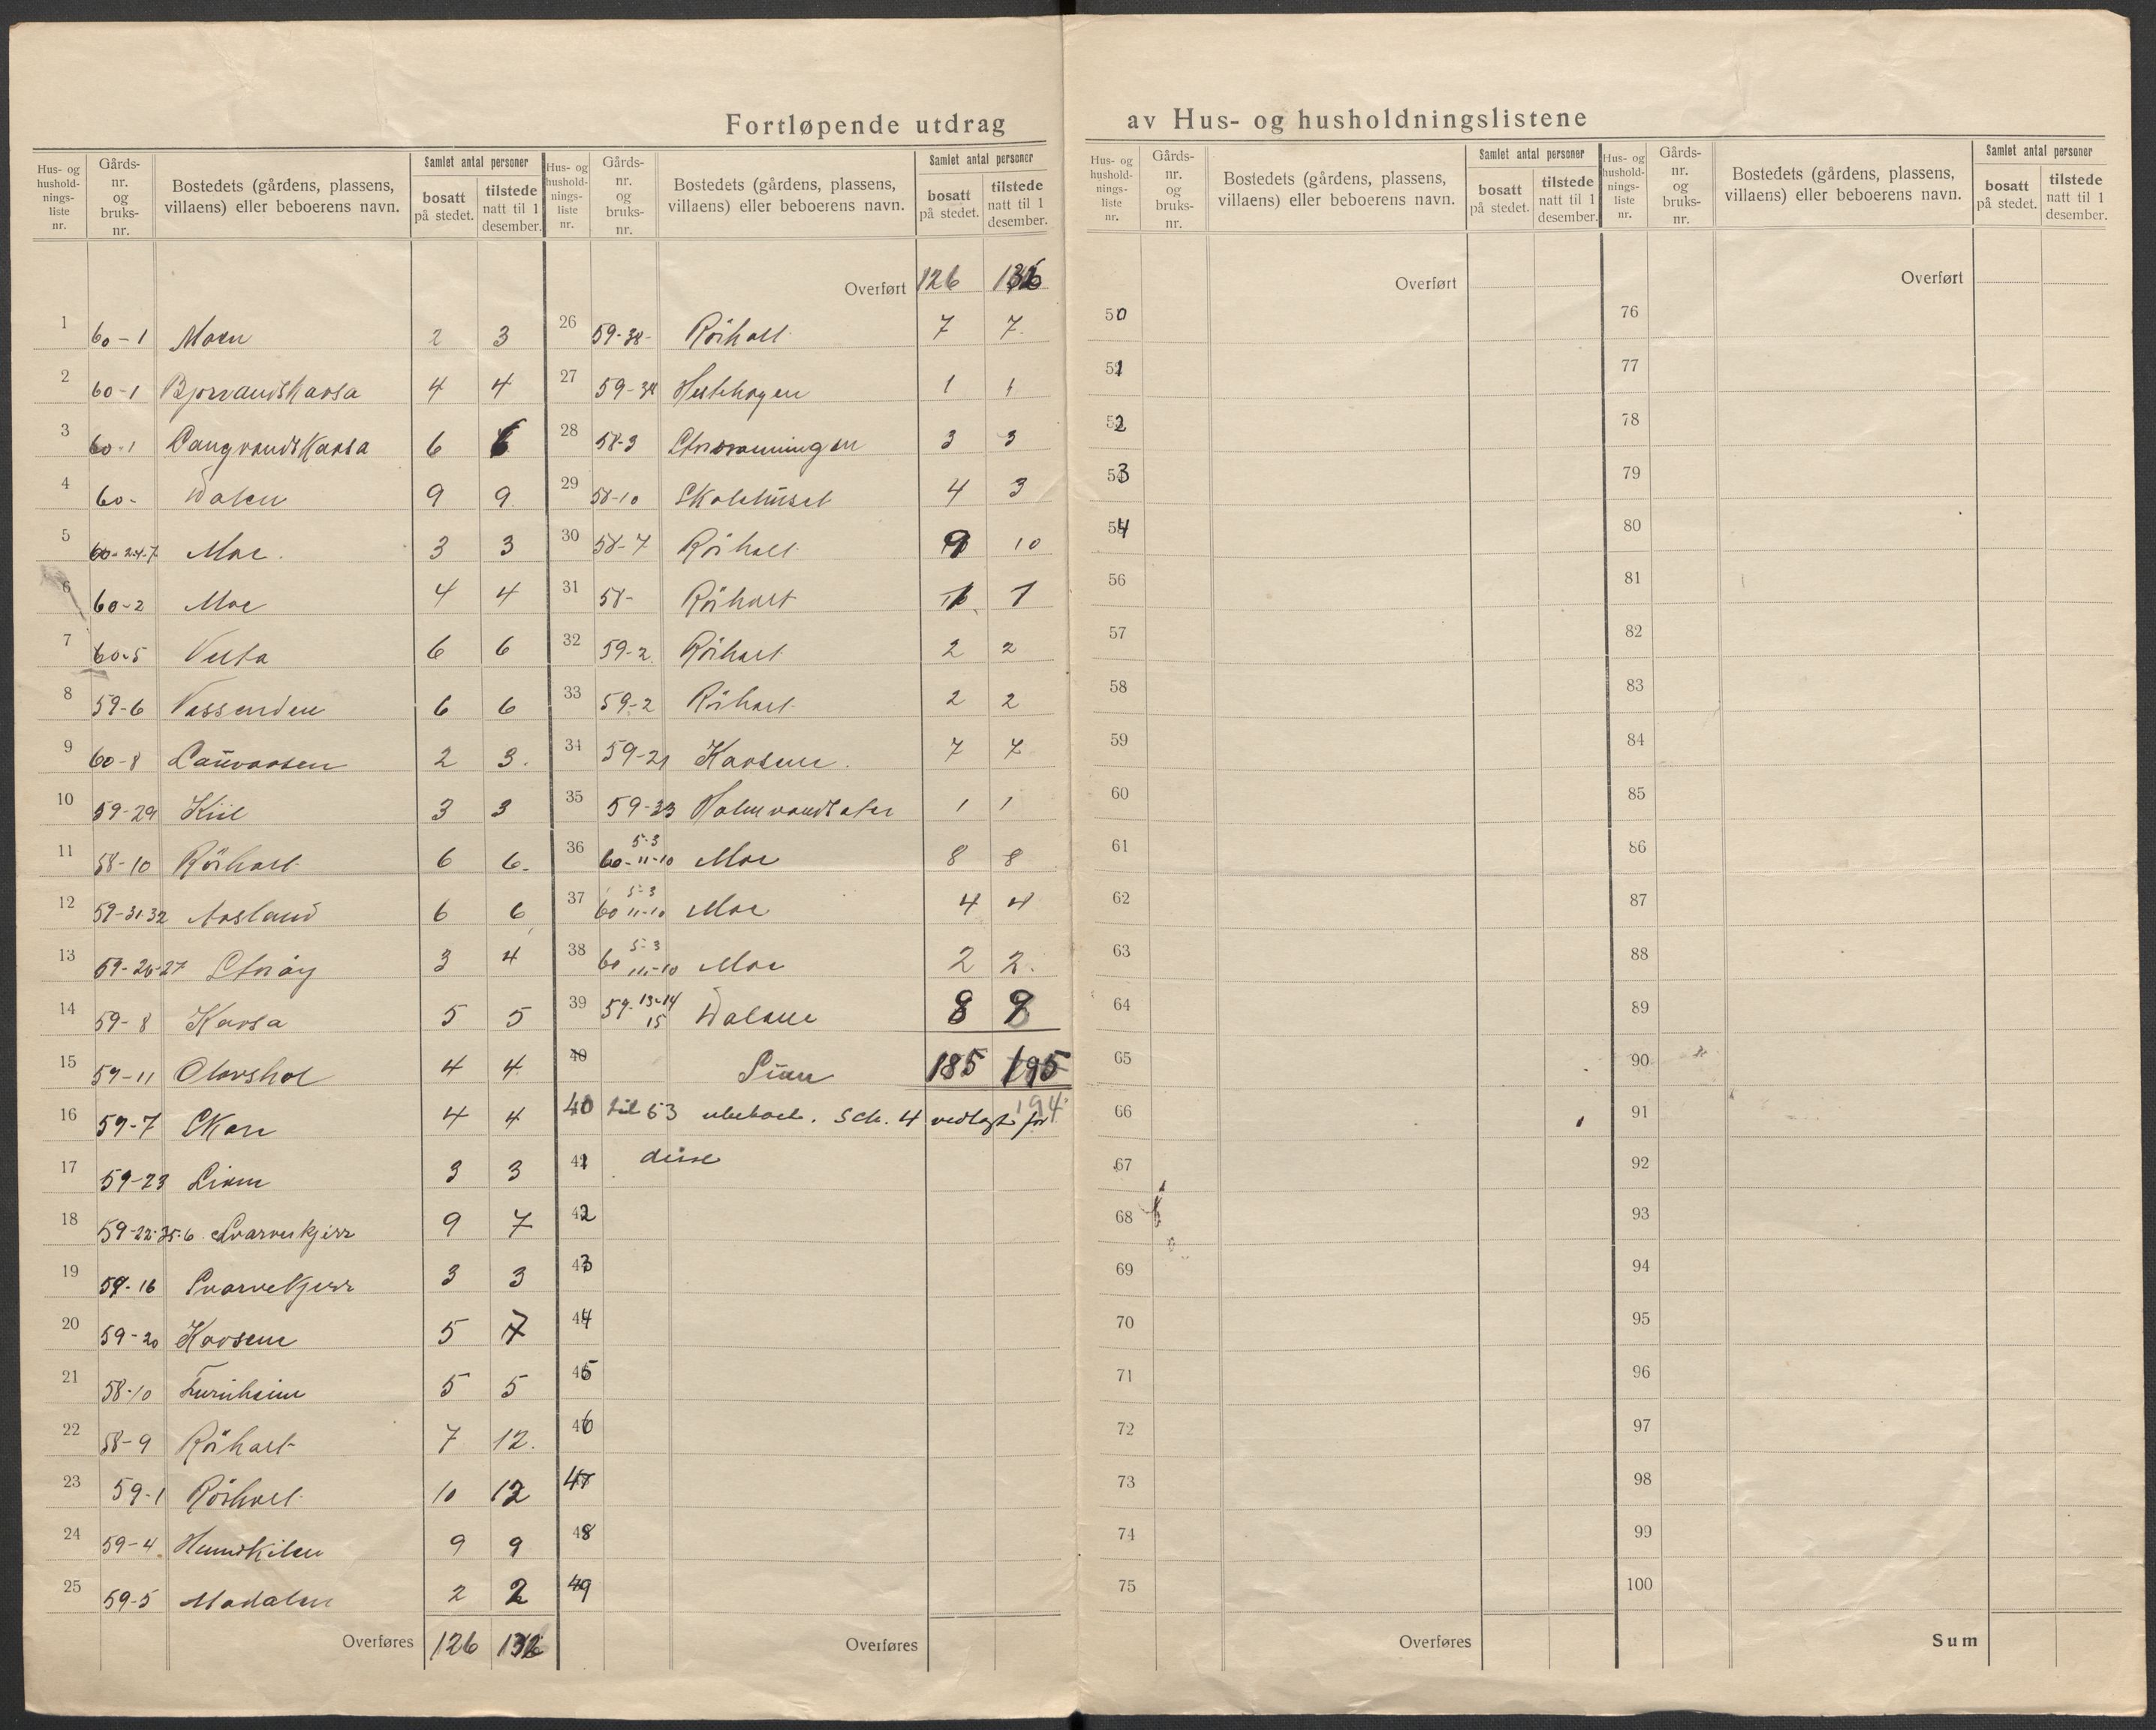 Fortløpende utdrag av Hus- og husholdningslistene
Hus- og hushold-nings-liste nr. Gårds-nr. og bruks-nr. Bostedets (gårdens, plassens, villaens) eller beboerens navn. Samlet antal personer bosatt på stedet. tilstede natt til 1 desember.
1 60-1 Moen 2 3
2 60-1 Bjorvandskaasa 4 4
3 60-1 Langvandskaasa 6 6
4 60- Dalen 9 9
5 60-2.4.7 Moe. 3 3
6 60-2 Moe 4 4
7 60-5 6 6
8 59-6 Vassenden 6 6
9 60-8 Lauvaasen 2 3.
10 59-29 Kiil 3 3
11 58-10 Röiholt 6 6.
12 59-31-32 Aasland 6 6
13 59-26-27 Storöy 3 4
14 59-8 Kaasa 5 5
15 59-11 Olavshol 4 4
16 59-7 4 4
17 59-23 Lien 3 3
18 59-22-35-6 Svarvekjerr 9 7
19 59-16 Svarvekjerr 3 3
20 59-20 Kaasene 5 7
21 58-10 Furuheim 5 5
22 58-9 Röiholt 7 12.
23 59-1 Röiholt 10 12
24 59-4 Humskilen 9 9
25 59-5 Modalen 2 2
Overføres 126
Hus- og hushold-nings-liste nr. Gårds-nr. og bruks-nr. Bostedets (gårdens, plassens, villaens) eller beboerens navn. Samlet antal personer bosatt på stedet. tilstede natt til 1 desember.
Overført 126
26 59-38- Röiholt 7 7.
27 59-34 Hestehagen 1 1
28 58-3 3 3
29 58-10 Skolehuset 4 3
30 58-7 Röiholt 9 10
31 58- Röiholt 1 1
32 59-2 Röiholt 2 2
33 59-2 Röiholt 2 2
34 59-21 Kaasene. 7 7
35 59-33 1 1
36 5-3
60-11-10 Moe 8 8
37 5-3
60 11-10 Moe 4 4
38 5-3
60 11-10 Moe 2 2.
39 59- 13-14
15 Dalene 8 8
40 Sum 185 195
194
40 til 53 ubeboet. Sch. 4 vedlagt for
41 disse
42
43
44
45
46
47
48
49
Overføres
Hus- og hushold-nings-liste nr. Gårds-nr. og bruks-nr. Bostedets (gårdens, plassens, villaens) eller beboerens navn. Samlet antal personer bosatt på stedet. tilstede natt til 1 desember.
Overført
50
51
52
53
54
56
57
58
59
60
61
62
63
64
65
66
67
68
69
70
71
72
73
74
75
Overføres
Hus- og hushold-nings-liste nr. Gårds-nr. og bruks-nr. Bostedets (gårdens, plassens, villaens) eller beboerens navn. Samlet antal personer bosatt på stedet. tilstede natt til 1 desember.
Overført
76
77
78
79
80
81
82
83
84
85
86
87
88
89
90
91
92
93
94
95
96
97
98
99
100
Sum